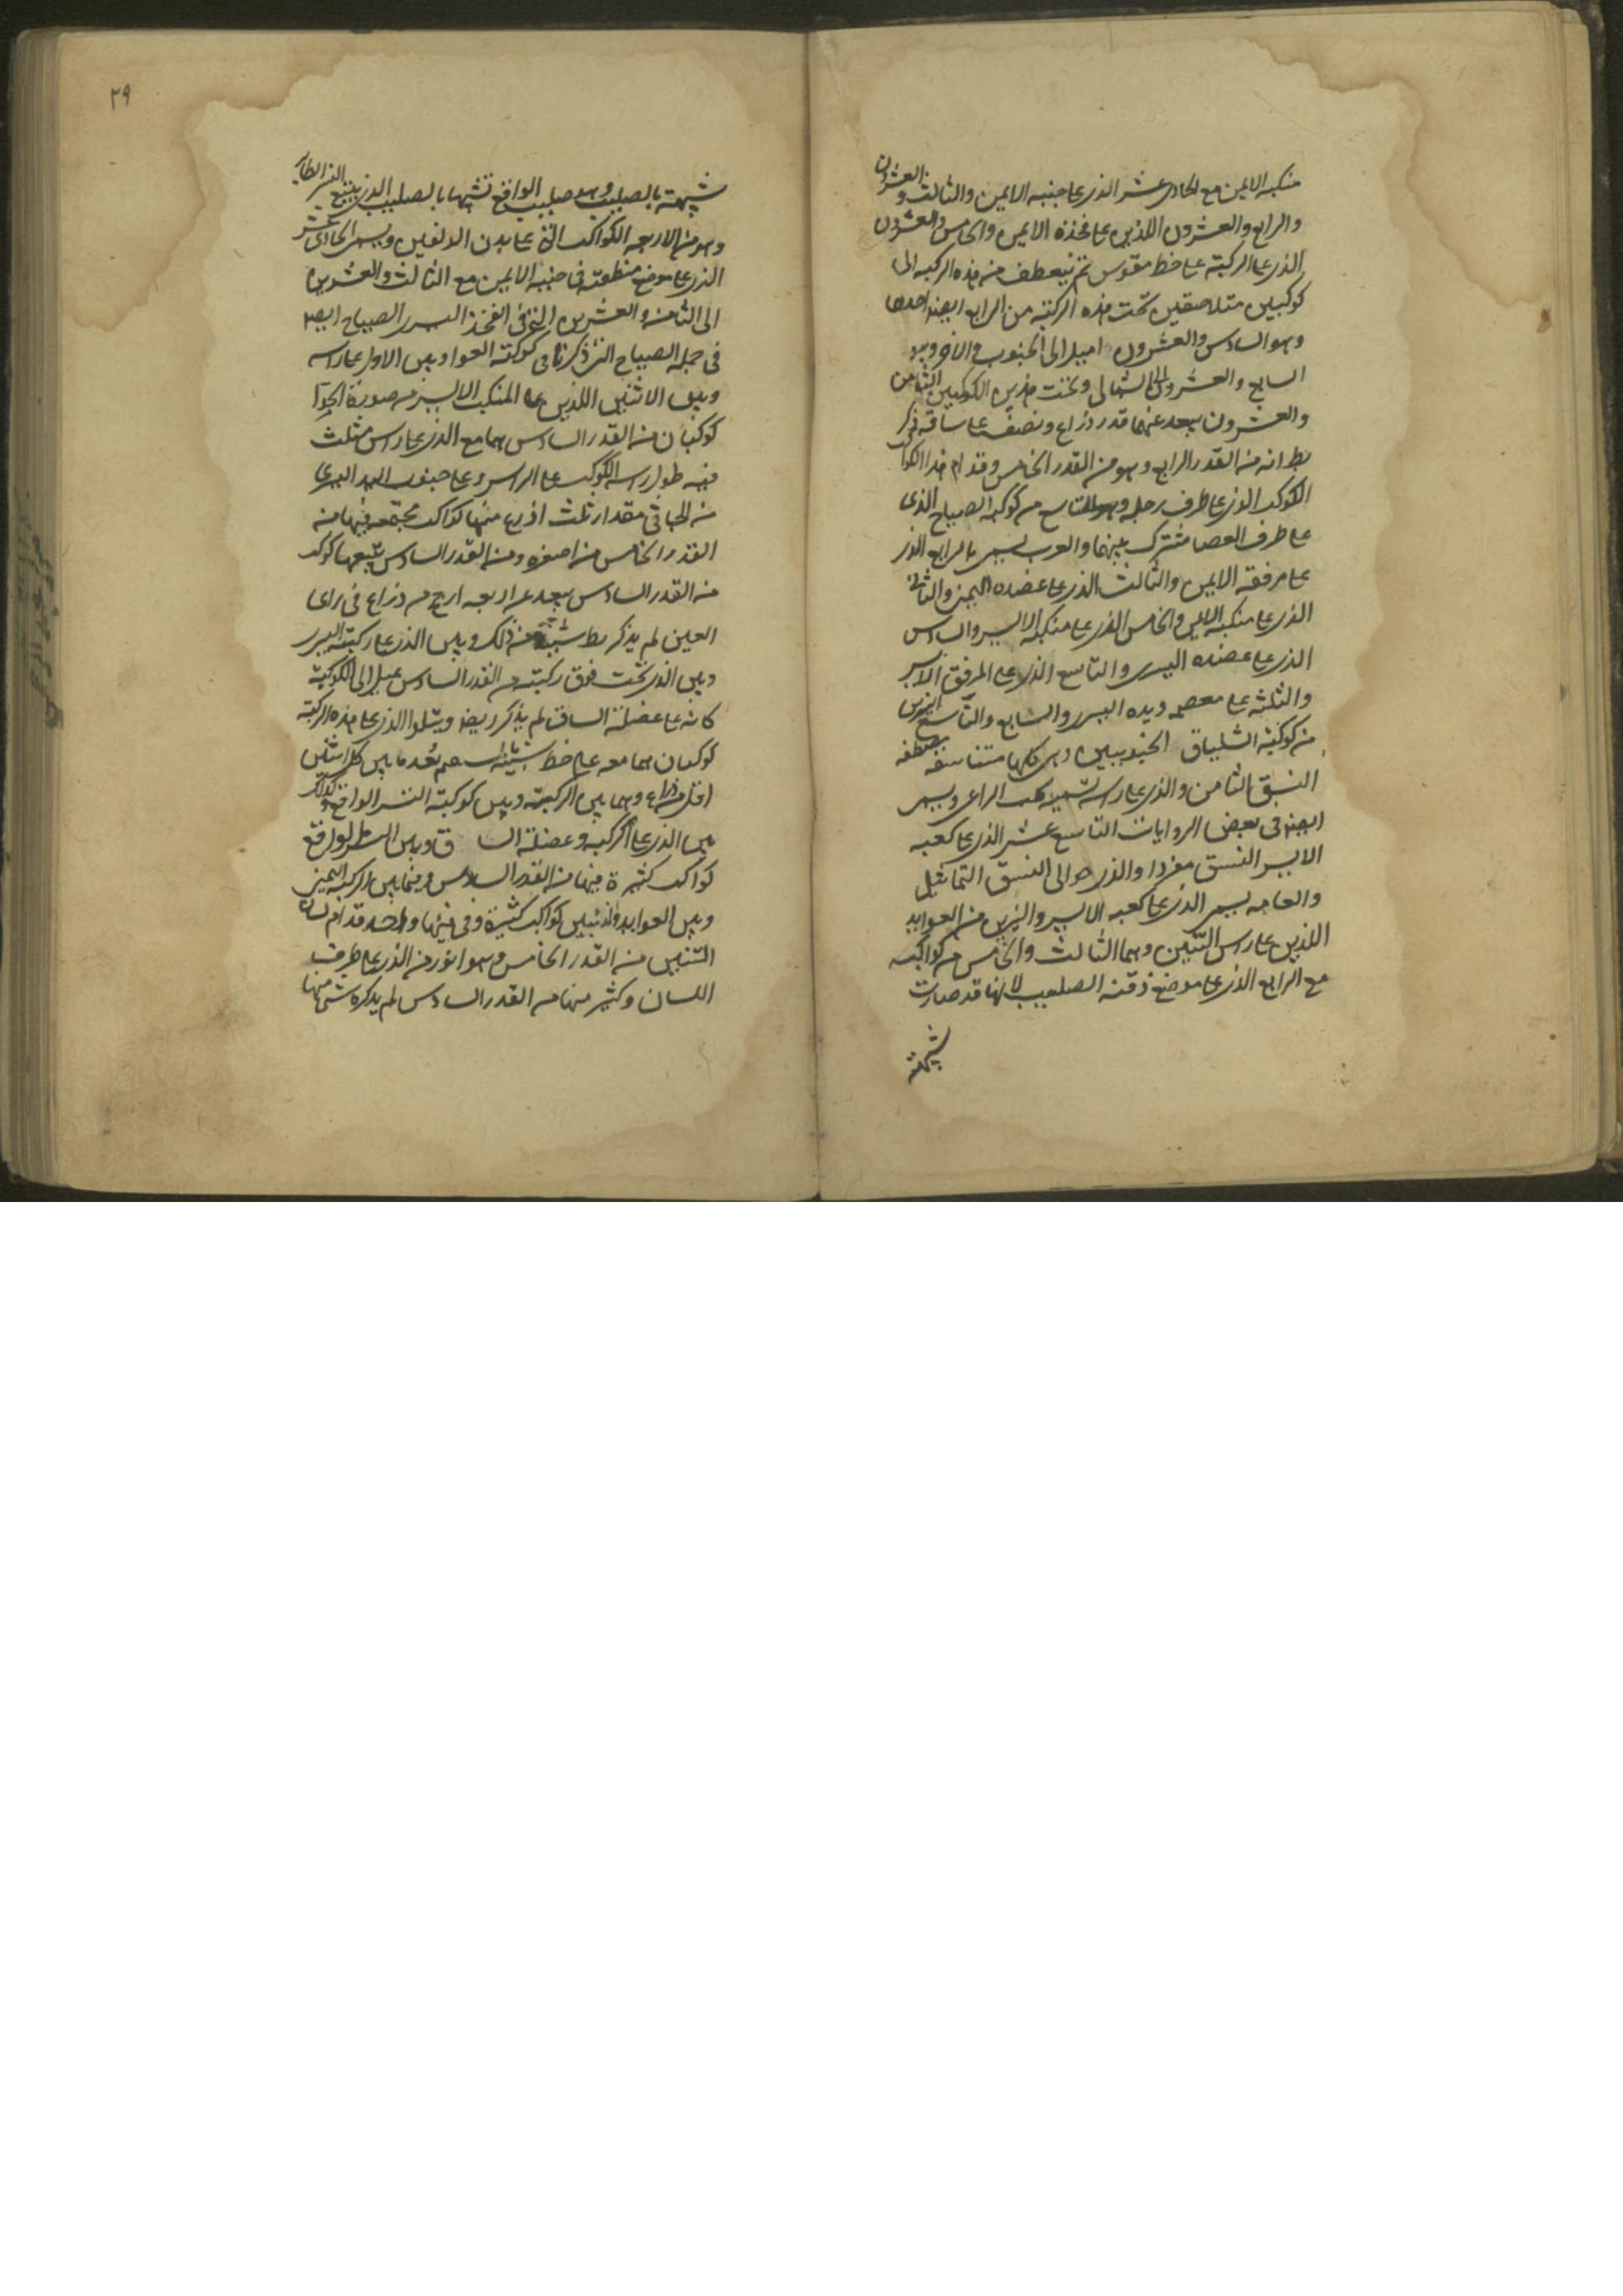 منكبه الايمن مع الحادى عشر الذى على جنبه الايمن والثالث والعشرون
والرابع والعشرون اللذين على فخذه الايمن والخامس والعشرون
الذى على الركبة على خط مقوس ثم ينعطف من هذه الركبه الى
كوكبين متلاصقين تحت هذه الركبة من الرابع ايضا احدهما
وهو السادس والعشرون اميل الى الجنوب والاخر وهو
السابع والعشرون الى الشمالى وتحت هذين الكوكبين الثامن
والعشرون يبعد عنهما قدر ذراع ونصف على ساقه ذكر
بط انه من القدر الرابع وهو من القدر الخامس وقدام هذا الكوكب
الكوكب الذى على طرف رجله وهو التاسع من كوكبه الصياح الذى
على طرف العصا مشترك بينهما والعرب يسمى بالرابع الذى
على مرفقه الايمن والثالث الذى على عضده اليمنى والثانى
الذى على منكبه الايمن والخامس الذى على منكبه الايسر والسادس
الذى على عضده اليسرى والتاسع الذى على المرفق الايسر
والثلثه على معصم ويده اليسرى والسابع والتاسع النيرين
من كوكبة الشلياق الجنوبيين وهى كلها متناسقه مصطفه
النسق الثامن والذى على راسه تسميه كلب الراعى ويسمى
ايضا فى بعض الروايات التاسع عشر الذى على كعبه
الايسر النسق مفردا والذى هو الى النسق التماثيل
والعامه يسمى الذى على كعبه الايسر والنيرين من العوايد
اللذين على راس التنين وهما الثالث والخامس من كواكبه
مع الرابع الذى على موضع ذقنه الصليب لانها قد صارت
شبيهة
٢٩
شبيهة بالصليب وهو صليب الواقع تشبيها بالصليب الذى يتبع النسر الطاير
وهو من الاربعه الكواكب التى على بدن الدلفين ويسمى الحادى عشر
الذى على موضع منطقته فى جنبه الايمن مع الثالث والعشرين
الى الثامن والعشرين التى فى الفخذ اليسرى الصياح ايضا
فى جمله الصياح التى ذكرنا فى كوكبة العوا وبين الاول على راسه
وبين الاثنين اللذين على المنكب الايسر من صورة الحوا
كوكبان من القدر السادس هما مع الذى على راس مثلث
فيه طول راسه الكوكب على الراس وعلى جنوب اليد اليسرى
من الجاثى مقدار ثلث اذرع منها كواكب مجتمعه فيها من
القدر الخامس من اصغره ومن القدر السادس يتبعها كوكب
من القدر السادس يبعد عن اربعه ارجح من ذراع فى راى
العين لم يذكر بط شيئا من ذلك وبين الذى على ركبته اليسرى
وبين الذى تحت فوق ركبته من القدر السادس يميل الى الكوكبة
كانه على عضلة الساق لم يذكر ايضا ويتلوا الذى على هذه الركبة
كوكبان هما معه على خط بعد ما بين كل اثنين
اقل من ذراع وهما بين الركبة وبين كوكبة النسر الواقع وكذلك
بين الذى على الركبه وعضلة الساق وبين النسر الواقع
كواكب كثيرة فيها من القدر السادس وفيما بين الركبه اليمنى
وبين العوايد والذئبين كواكب كثيرة وفى فيها واحد قدام لسان
التنين من القدر الخامس وهو انور من الذى على طرف
اللسان وكثير منها من القدر السادس لم يذكره شيئا منها